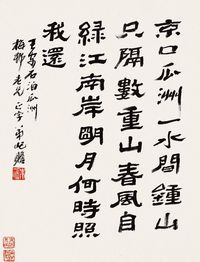 京口瓜洲一水間鍾山
只隔數重山春風自
綠江南岸明月何時照
我還
泊瓜洲
梅邨老兄正字 弟